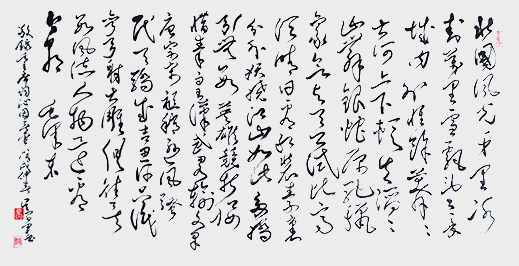 北國風光千里冰
封萬里雪飄望長
城内外惟餘莽莽
大河上下頓失滔滔
山舞銀蛇原馳蠟
象欲與天公試比高
須晴日看紅裝素裹
分外妖嬈江山如此多嬌
引無數英雄競折腰
惜秦皇漢武略輸文采
唐宗宋祖稍遜風騷一
代天驕成吉思汗只識
彎弓射大雕俱往矣
數風流人物還看
今朝 毛澤東
敬錄毛主席詞沁園春雪